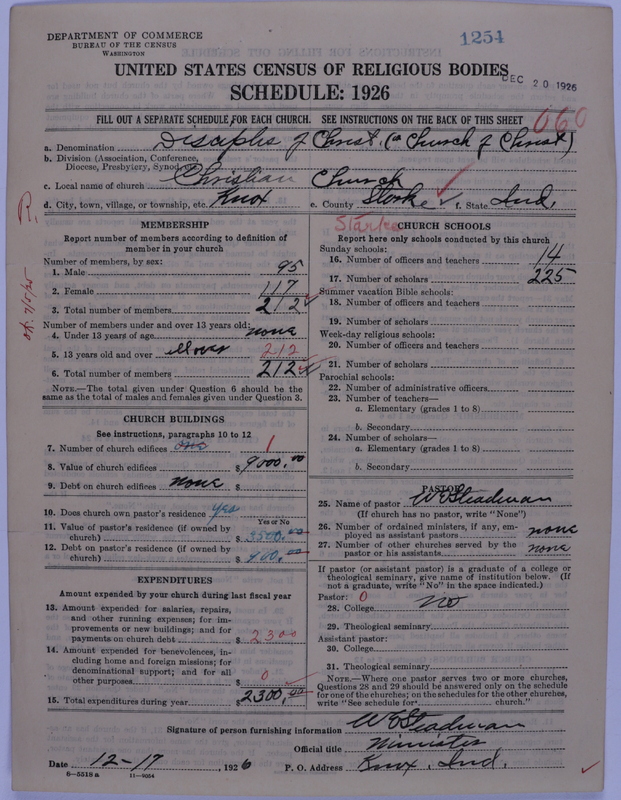 DEPARTMENT OF COMMERCE
BUREAU OF THE CENSUS
WASHINGTON
1254
UNITED STATES CENSUS OF RELIGIOUS BODIES
DEC 20 1926
SCHEDULE: 1926
FILL OUT A SEPARATE SCHEDULE FOR EACH CHURCH. SEE INSTRUCTIONS ON THE BACK OF THIS SHEET
060
a. Denomination Disciples of Christ, (a Church of Christ)
b. Division (Association, Conference, Diocese, Presbytery, Synod, etc.)
c. Local name of church Christian Church
d. City, town, village, or township, etc. Knox e. County Starke f. State Ind.
Starke
MEMBERSHIP
Report number of members according to definition of
member in your church
Number of members, by sex:
1. Male 95
2. Female 117
3. Total number of members 212
Number of members under and over 13 years old:
4. Under 13 years of age none
5. 13 years old and over all over 212
6. Total number of members 212
NOTE.—The total given under Question 6 should be the
same as the total of males and females given under Question 3.
CHURCH BUILDINGS
See instructions, paragraphs 10 to 12
7. Number of church edifices one 1
8. Value of church edifices $ 9000.00
9. Debt on church edifices none $
10. Does church own pastor's residence? yes
Yes or No
11. Value of pastor's residence (if owned by
church) $ 3500.00
12. Debt on pastor's residence (if owned by
church) $ 400.00
EXPENDITURES
Amount expended by your church during last fiscal year
13. Amount expended for salaries, repairs,
and other running expenses; for im-
provements or new buildings; and for
payments on church debt $ 2300
14. Amount expended for benevolences, in-
cluding home and foreign missions; for
denominational support; and for all
other purposes $ 0
15. Total expenditures during year $ 2300.00
CHURCH SCHOOLS
Report here only schools conducted by this church
Sunday schools:
16. Number of officers and teachers 14
17. Number of scholars 225
Summer vacation Bible schools:
18. Number of officers and teachers
19. Number of scholars
Week-day religious schools:
20. Number of officers and teachers
21. Number of scholars
Parochial schools:
22. Number of administrative officers
23. Number of teachers—
a. Elementary (grades 1 to 8)
b. Secondary
24. Number of scholars—
a. Elementary (grades 1 to 8)
b. Secondary
PASTOR
25. Name of pastor W E Steadman
(If church has no pastor, write "None")
26. Number of ordained ministers, if any, em-
ployed as assistant pastors none
27. Number of other churches served by the
pastor or his assistants none
If pastor (or assistant pastor) is a graduate of a college or
theological seminary, give name of institution below. (If
not a graduate, write "No" in the space indicated.)
Pastor: 0
28. College No
29. Theological seminary
Assistant pastor:
30. College
31. Theological seminary
NOTE.—Where one pastor serves two or more churches,
Questions 28 and 29 should be answered only on the schedule
for one of the churches; on the schedules for the other churches,
write "See schedule for church."
Signature of person furnishing information W E Steadman
Official title Minister
Date 12-17, 1926 P. O. Address Knox, Ind.
8—5518a 11—9054